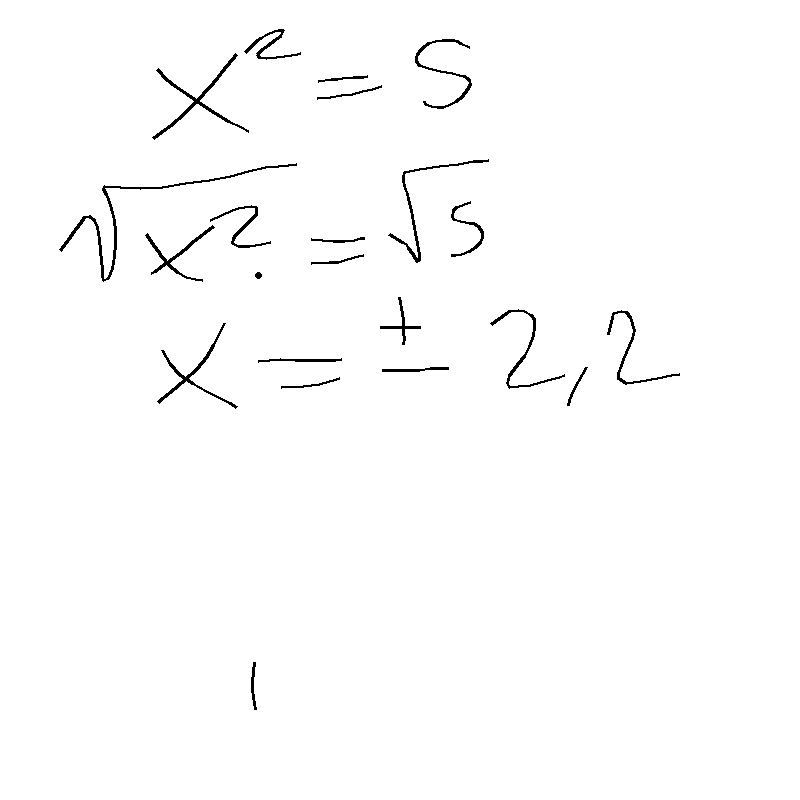 x² = 5
√x². = √5
x = ± 2,2